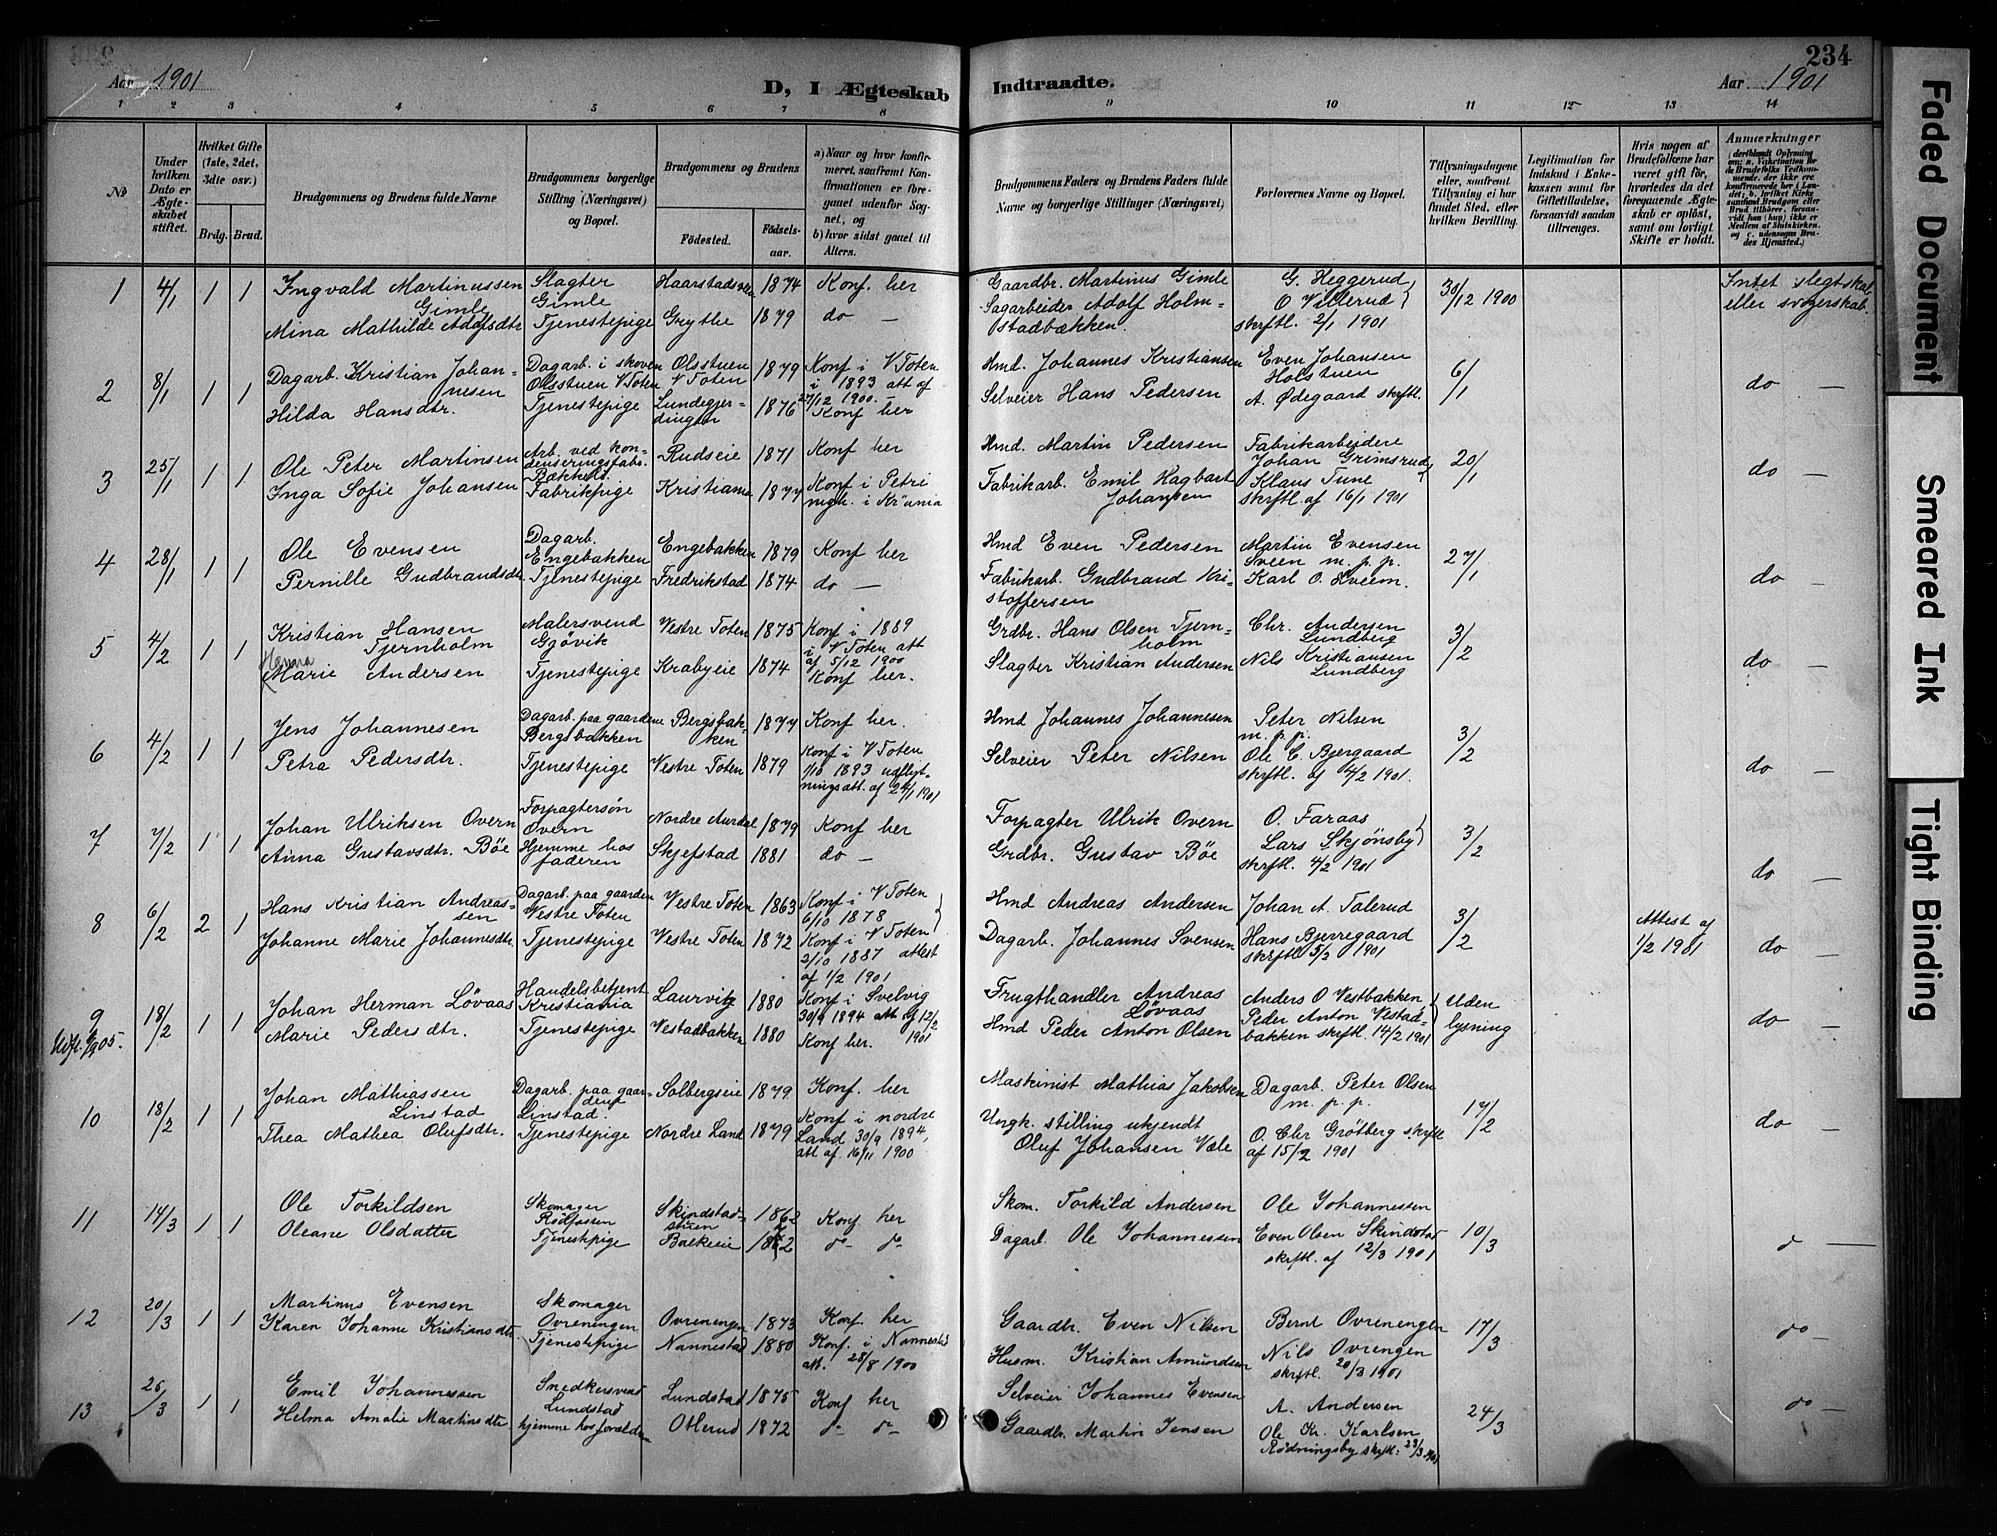 234
Aar 1901
D, I Ægteskab Indtraadte.
Aar 1901
1 2 3 4 5 6 7 8 9 10 11 12 13 14
№
Under hvilken Dato er Ægteskabet stiftet.
Hvilket Gifte (1ste, 2det, 3die osv.)
Brdg. Brud.
Brudgommens og Brudens fulde Navne
Brudgommens borgerlige Stilling (Næringsvei) og Bopæl.
Brudgommens og Brudens
Fødested.
Fødselsaar.
a) Naar og hvor konfirmeret, saafremt Konfirmationen er foregaaet udenfor Sognet, og
b) hvor sidst gaaet til Alters.
Brudgommens Faders og Brudens Faders fulde Navne og borgerlige Stillinger (Næringsvei)
Forlovernes Navne og Bopæl.
Tillysningsdagene eller, saafremt Tillysning ei har fundet Sted, efter hvilken Bevilling.
Legitimation for Indskud i Enkekassen samt for Giftetilladelse, forsaavidt saadan tiltrænges.
Hvis nogen af Brudefolkene har været gift før, hvorledes da det foregaaende Ægteskab er opløst, samt om lovligt Skifte er holdt.
Anmærkninger
1 4/1 1 1 Ingvald Martinussen Gimle Slagter Gimle Haarstadsveen 1874 Konf. her Gaardbr. Martinus Gimle G. Heggerud 30/12 1900 Intet slegtskab eller svogerskab.
Mina Mathilde Adolfsdtr Tjenestepige Grythe 1879 do — Sagarbeider Adolf Holmstadbækken. O Villerud skrftl. 2/1 1901
2 8/1 1 1 Dagarb. Kristian Johannesen Dagarb. i skoven Olsstuen V Toten Olsstuen V Toten 1879 Konf i V Toten i 1893 att af 27/12 1900. — Hmd. Johannes Kristiansen Even Johansen Holstuen 6/1 do —
Hilda Hansdtr. Tjenestepige Lundegjerdingen 1876 Konf her Selveier Hans Pedersen A. Ødegaard skrftl.
3 25/1 1 1 Ole Peter Martinsen Arb. ved kondenseringsfabr. Bakkeli. Rudseie 1871 Konf her Hmd. Martin Pedersen Fabrikarbeidere Johan Grimsrud 20/1 do —
Inga Sofie Johansen Fabrikpige Kristiania 1877 Konf i Petri mgh. i Kr'ania Fabrikarb. Emil Hagbart Johansen Klaus Tune skrftl. af 16/1 1901
4 28/1 1 1 Ole Evensen Dagarb. Engebakken Engebakken 1879 Konf her Hmd Even Pedersen Martin Evensen Sveen m. p. p. 27/1 do —
Pernille Gudbrandsdtr Tjenestepige Fredrikstad 1874 do — Fabrikarb. Gudbrand Kristoffersen Karl O. Sveen.
5 4/2 1 1 Kristian Hansen Tjernholm Malersvend Gjøvik Vestre Toten 1875 Konf i 1889 i V Toten att af 5/12 1900 Grdbr. Hans Olsen Tjernholm Chr. Andersen Lundberg 3/2 do —
Hanna
Marie Andersen Tjenestepige Krabyeie 1874 Konf her. Slagter Kristian Andersen Nils Kristiansen Lundberg
6 4/2 1 1 Jens Johannesen Dagarb. paa gaardene Bergsbakken Bergsbakken 1877 Konf her. Hmd Johannes Johannesen Peter Nilsen m. p. p. 3/2 do —
Petra Pedersdtr. Tjenestepige Vestre Toten 1879 Konf i V Toten 1/10 1893 udflytningsatt. af 24/1 1901 Selveier Peter Nilsen Ole C. Bjergaard skrftl. af 4/2 1901.
7 7/2 1 1 Johan Ulriksen Overn Forpagtersøn Overn Nordre Aurdal 1879 Konf her Forpagter Ulrik Overn O. Faraas 3/2 do —
Anna Gustavsdtr. Böe Hjemme hos faderen Skjefstad 1881 do — Grdbr. Gustav Böe Lars Skjönsby skrftl. 4/2 1901
8 6/2 2 1 Hans Kristian Andreassen Dagarb. paa gaarden Vestre Toten Vestre Toten 1863 Konf i V Toten 6/10 1878 Hmd Andreas Andersen Johan A. Talerud 3/2 Attest af 1/2 1901 do —
Johanne Marie Johannesdtr. Tjenestepige Vestre Toten 1872 Konf i V Toten 2/10 1887 attest af 1/2 1901 Dagarb. Johannes Svensen Hans Bjerregaard skrftl 5/2 1901
9 18/2 1 1 Johan Herman Lövaas Handelsbetjent Kristiania Laurvig 1880 Konf i Svelvig 30/9 1894 att af 12/2 1901 Frugthandler Andreas Lövaas Anders O Vestbakken Uden lysning do —
Marie Pedersdtr. Tjenestepige Vestadbakken 1880 Konf her. Hmd Peder Anton Olsen Peder Anton Vestadbakken skrftl. 14/2 1901
10 18/2 1 1 Johan Mathiassen Linstad Dagarb. paa gaarden Linstad. Solbergseie 1879 Konf. her Maskinist Mathias Jakobsen Dagarb. Peter Olsen m. p. p. 17/2 do —
Thea Mathea Olufsdtr. Tjenestepige Nordre Land 1879 Konf i nordre Land 30/9 1894, att af. 16/11 1900 Ungk. stilling ukjendt Oluf Johansen Væle O. Chr Grötberg skrftl af 15/2 1901
11 14/3 1 1 Ole Torkildsen Skomager Rødfossen Skindstadstuen 1862 Konf her Skom. Torkild Andersen Ole Johannessen 10/3 d —
Oleane Olsdatter Tjenestepige Balkeeie 1872 do do Dagarb. Ole Johannessen Even Olsen Skindstad skrftl. af 12/3 1901
12 20/3 1 1 Martinus Evensen Skomager Ovreningen Ovreningen 1873 Konf. her Gaardbr. Even Nilsen Bernt Ovreningen 17/3 do —
Karen Johanne Kristiansdtr. Tjenestepige Nannestad 1880 Konf. i Nannestad att. 28/8 1900 Husm. Kristian Amundsen Nils Ovrengen skrftl. 20/3 1901
13 26/3 1 1 Emil Johannessen Snedkersvend Lundstad Lundstad 1875 Konf her Selveier Johannes Evensen A. Andersen 24/3 do —
Helma Amalie Martinsdtr. hjemme hos foreldrene Otterud 1872 do do Gaardbr. Martin Jensen Ole Kr. Karlsen Rødningsby skrftl. 23/3 1901
Faded Document
Smeared Ink
Tight Binding